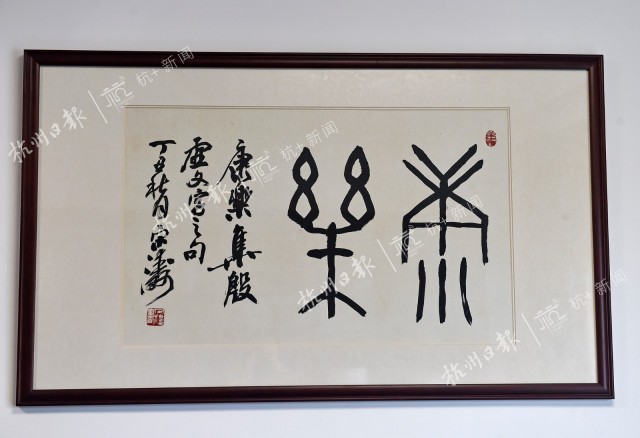 康樂
康樂集殷
虛文字之句
丁丑秋月
杭州日报 杭+新闻
杭州日报 杭+新闻
杭州日报 杭+新闻